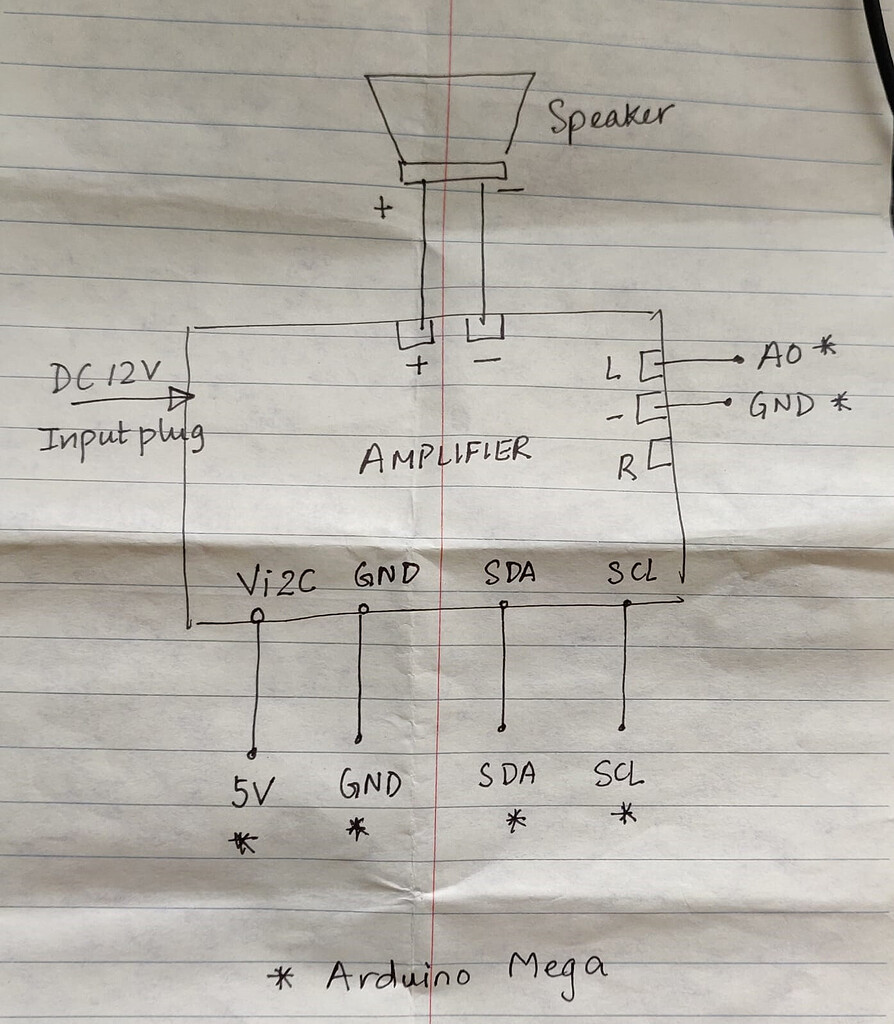 Speaker
+ −
+ −
DC 12V
Input plug
L
−
R
A0 *
GND *
AMPLIFIER
Vi2C GND SDA SCL
5V GND SDA SCL
* * * *
* Arduino Mega